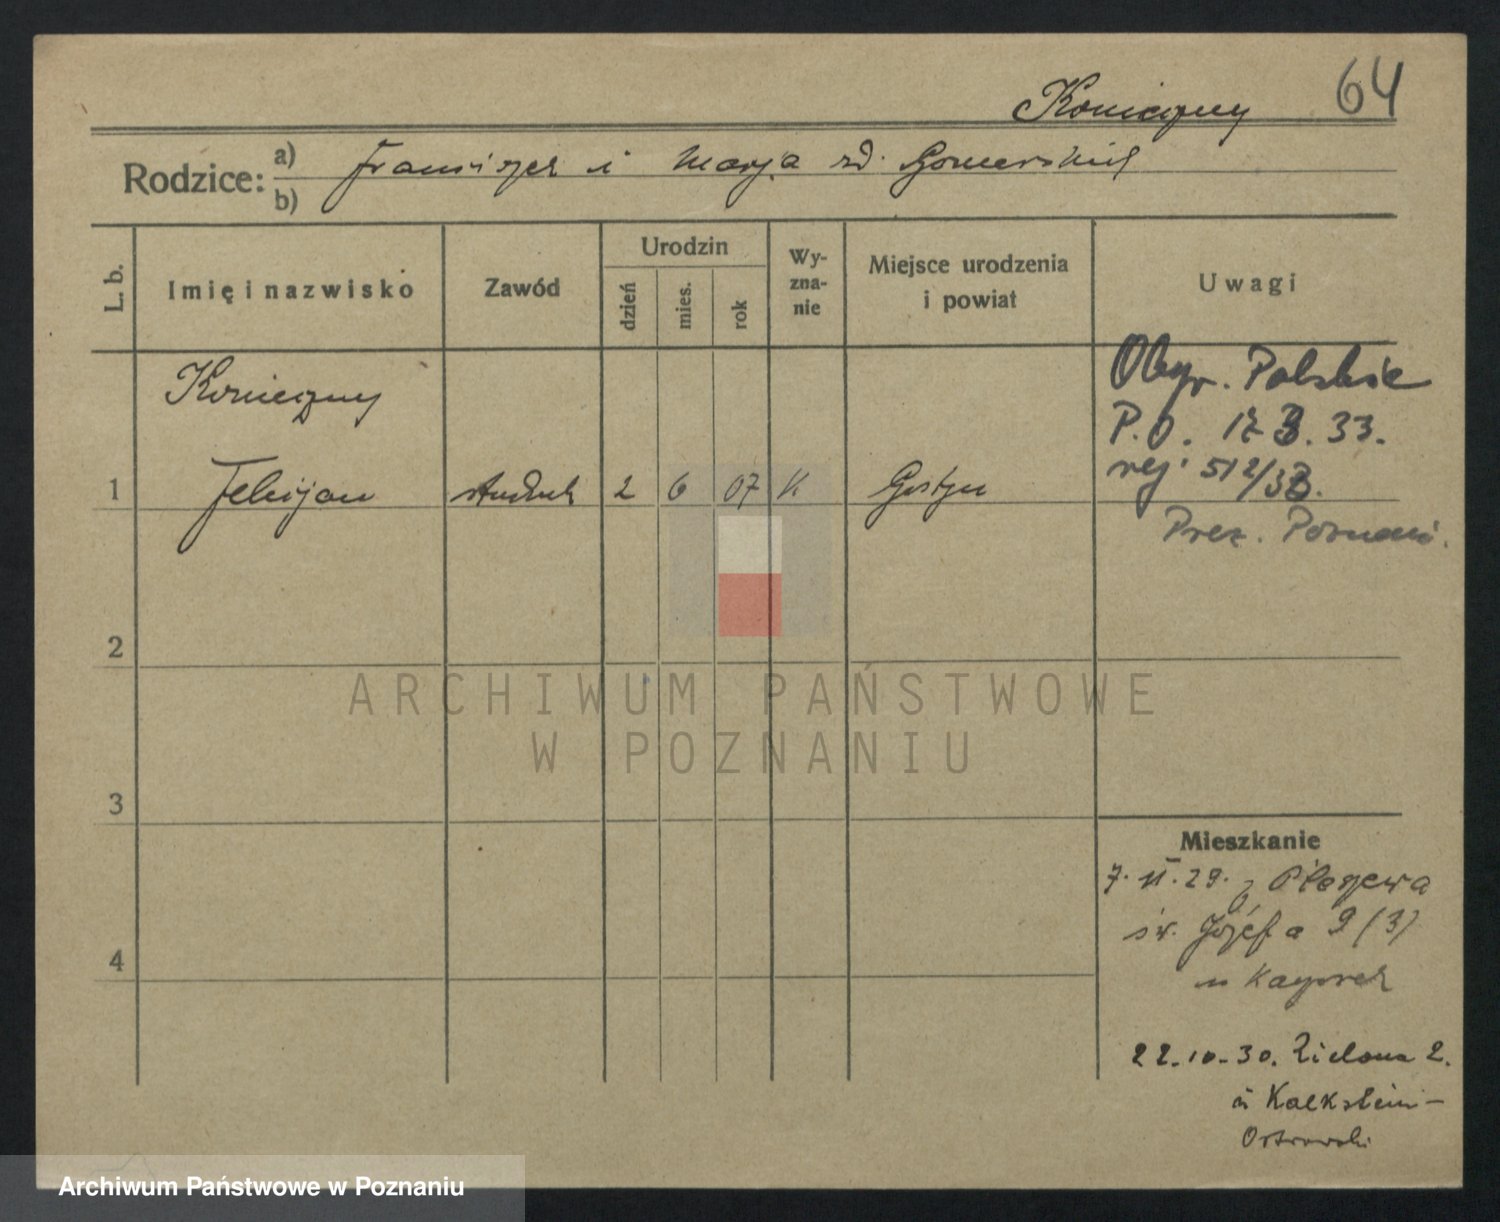 Konieczny 64
Rodzice: a) Franciszek i Marja zd. Gomerskich
b)
L. b. Imię i nazwisko Zawód Urodzin dzień mies. rok Wy-zna-nie Miejsce urodzenia i powiat Uwagi
Konieczny
1 Felicjan student 2 6 07 K Gostyń
Obyw. Polskie
P.O. 33.
rej. 512/33.
Prez. Poznań.
2
3
4
Mieszkanie
7. 29. z Pleszewa
św. Józefa 9 (3)
u
22.10.30. Zielona 2.
u Kalkstein-
Ostrowski
ARCHIWUM PAŃSTWOWE
W POZNANIU
Archiwum Państwowe w Poznaniu